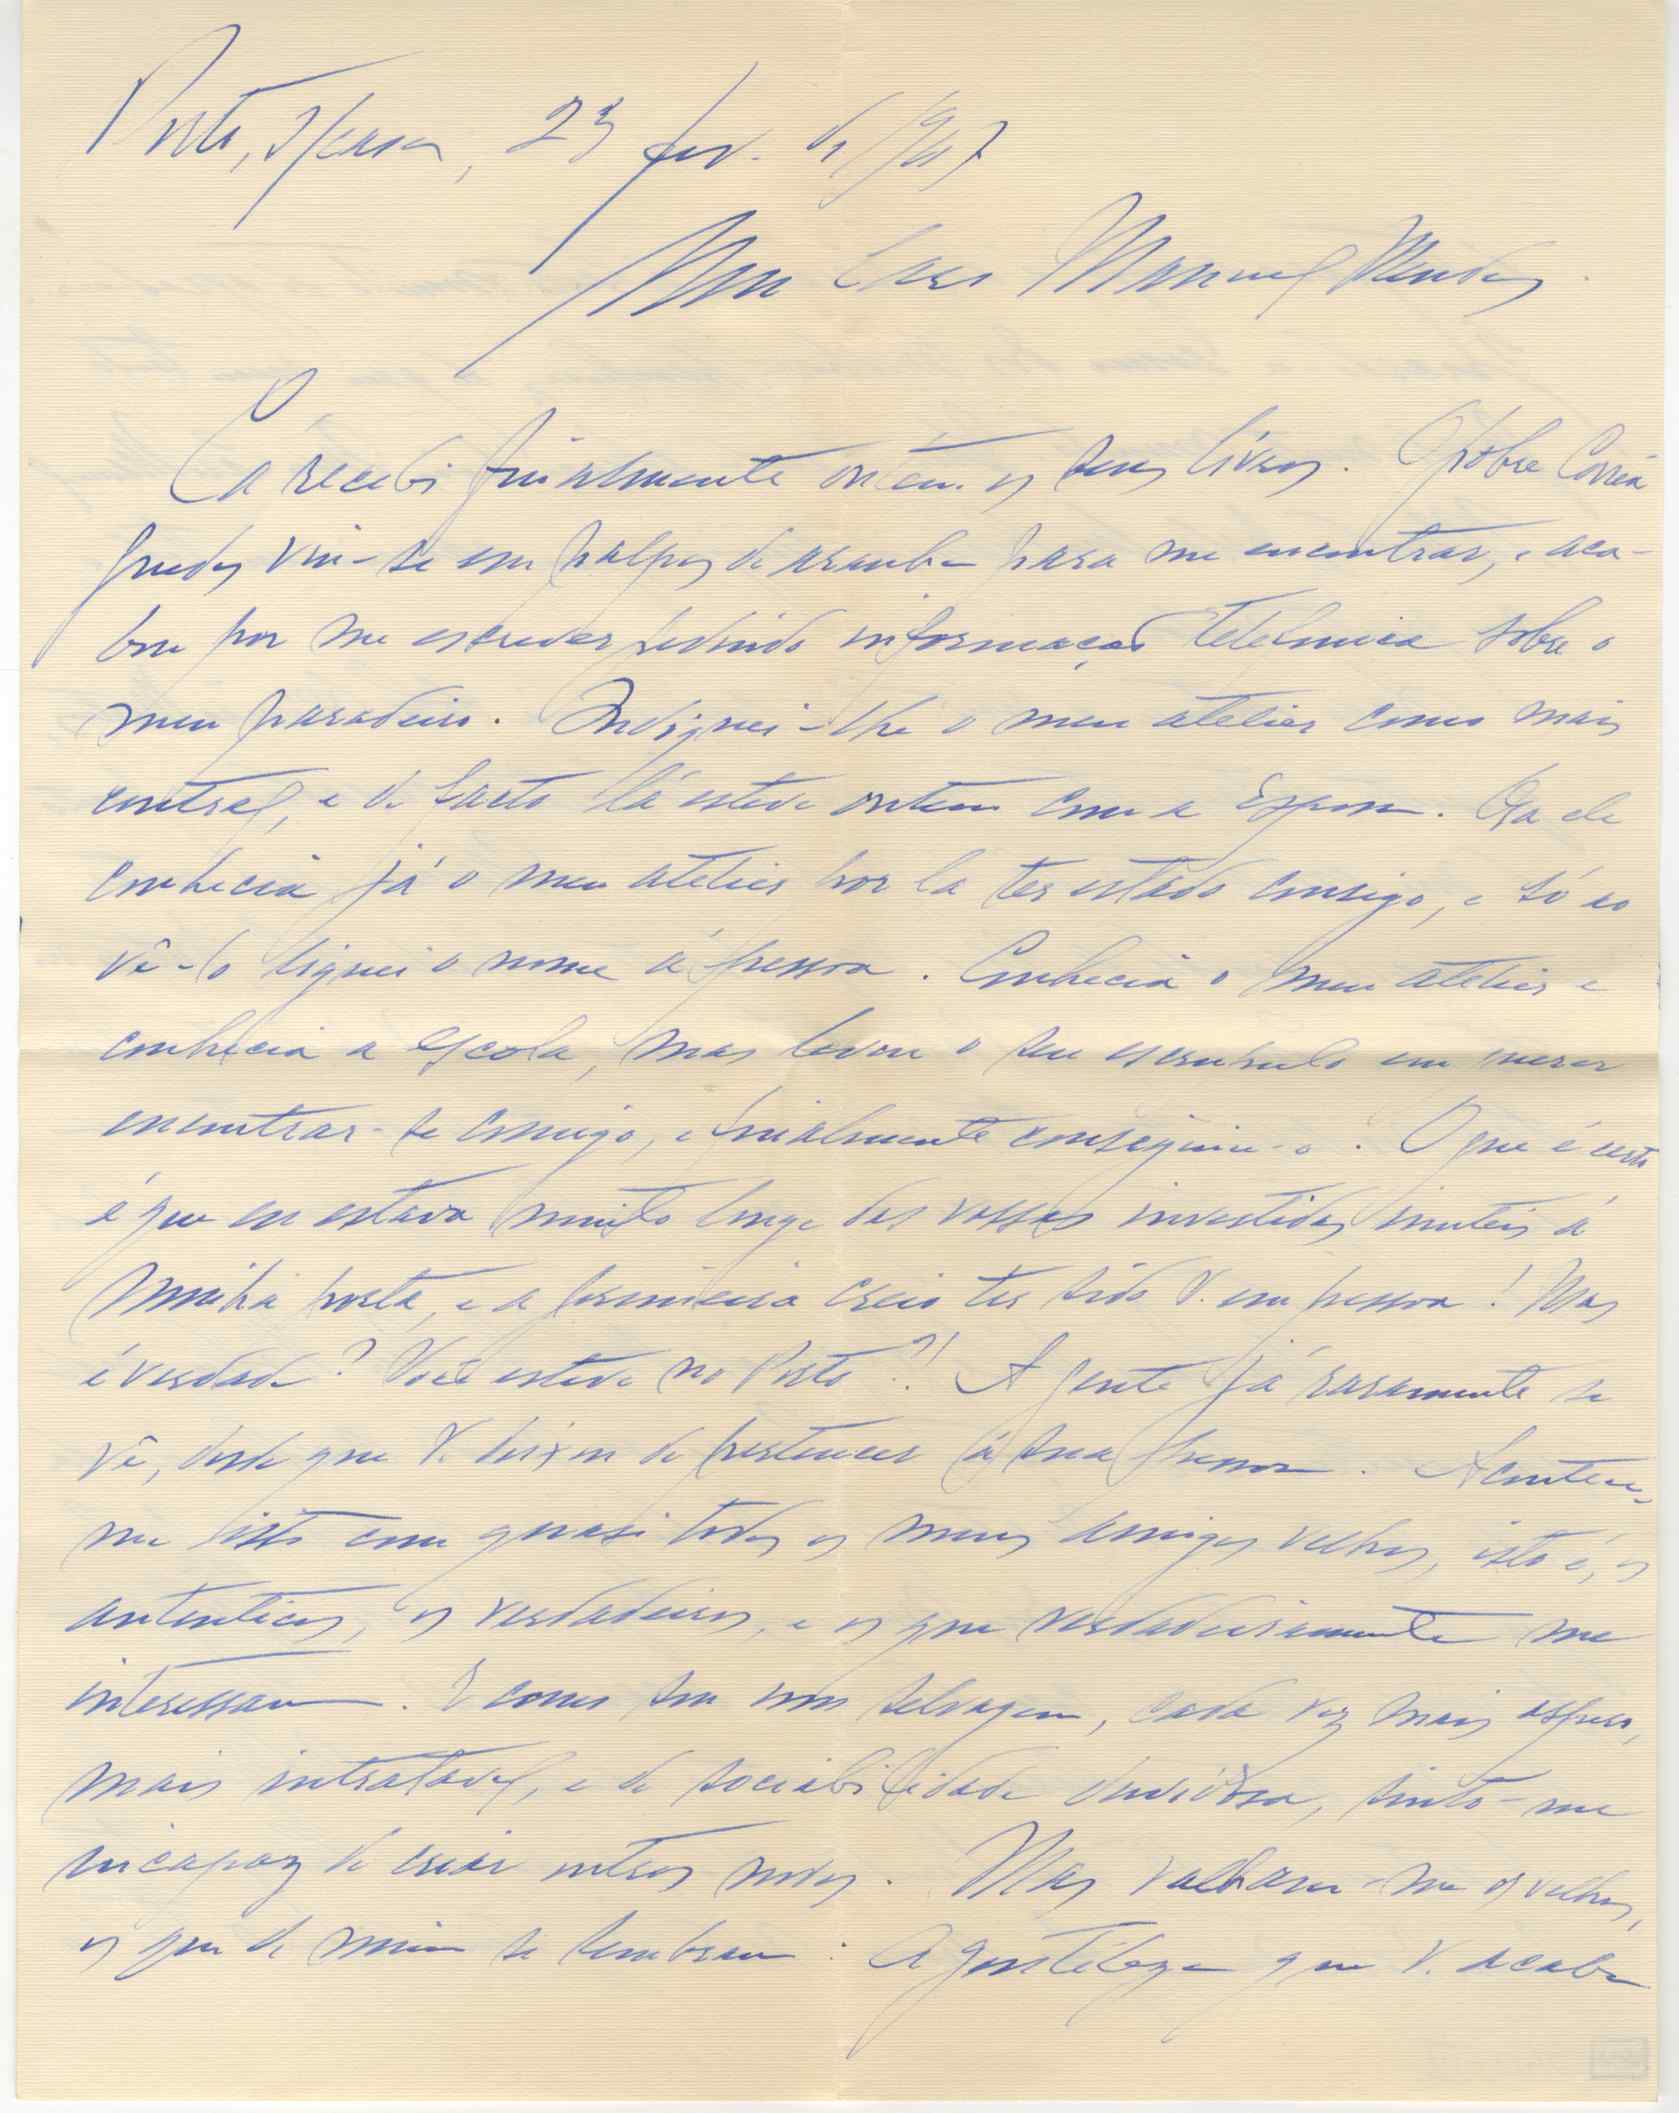 Porto, s/casa, 23 fev. de 1947
Meu Caro Manuel Mendes.
Cá recebi finalmente ontem os seus livros. O pobre Corrêa
Guedes viu-se em palpos de aranha para me encontrar, e aca-
bou por me escrever pedindo informação telefonica sobre o
meu paradeiro. Indiquei-lhe o meu atelier como mais
central, e de facto lá esteve ontem com a Esposa. Ora ele
conhecia já o meu atelier por la ter estado consigo, e só ao
vê-lo liguei o nome á pessoa. Conhecia o meu atelier e
conhecia a escola, mas levou o seu escrupulo em querer
encontrar-se comigo, e finalmente conseguiu-o. O que é certo
é que eu estava muito longe das vossas investidas inuteis á
minha porta, e a primeira creio ter sido V. em pessoa! Mas
é verdade? Você esteve no Porto?! A gente já raramente se
vê, desde que V. deixou de pertencer á sua pessoa. Acontece-
me isto com quasi todos os meus amigos velhos, isto é, os
autenticos, os verdadeiros, e os que verdadeiramente me
interessam. E como sou um selvagem, cada vez mais aspero,
mais intratavel, e de sociabilidade duvidosa, sinto-me
incapaz de criar outros novos. Mas valham-me os velhos,
os que de mim se lembram. A gentileza que V. acaba